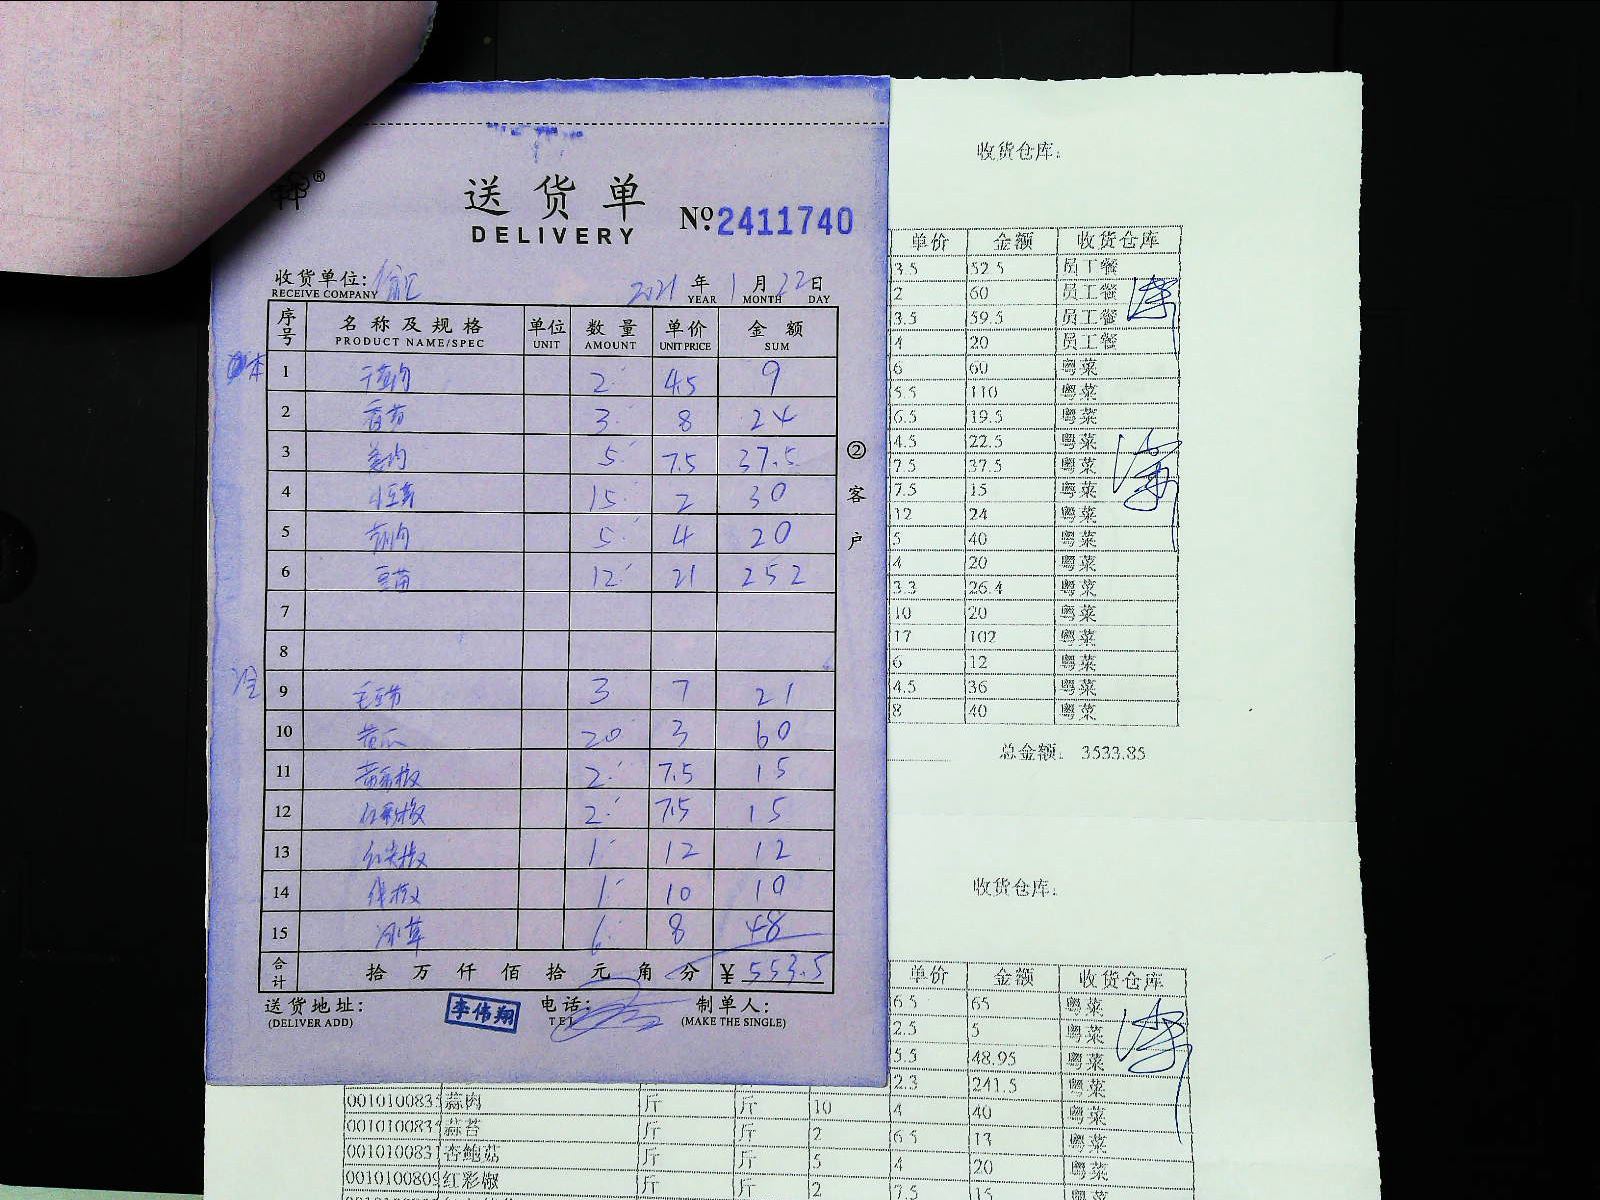 送货单
DELIVERY
№ 2411740
收货单位:
RECEIVE COMPANY
2021 年 1 月 22 日
YEAR MONTH DAY
序号 名称及规格 单位 数量 单价 金额
PRODUCT NAME/SPEC UNIT AMOUNT UNIT PRICE SUM
本
1 2 4.5 9
2 3 8 24
3 姜肉 5 7.5 37.5
4 15 2 30
5 5 4 20
6 豆苗 12 21 252
7
8
9 3 7 21
10 黄瓜 20 3 60
11 黄彩椒 2 7.5 15
12 红彩椒 2 7.5 15
13 红尖椒 1 12 12
14 线椒 1 10 10
15 6 8 48
合计 拾 万 仟 佰 拾 元 角 分 ¥ 553.5
送货地址:
(DELIVER ADD)
李伟翔
电话:
TEL
制单人:
(MAKE THE SINGLE)
② 客户
收货仓库:
单价 金额 收货仓库
3.5 52.5 员工餐
2 60 员工餐
3.5 59.5 员工餐
4 20 员工餐
6 60 粤菜
5.5 110 粤菜
6.5 19.5 粤菜
4.5 22.5 粤菜
7.5 37.5 粤菜
7.5 15 粤菜
12 24 粤菜
5 40 粤菜
4 20 粤菜
3.3 26.4 粤菜
10 20 粤菜
17 102 粤菜
6 12 粤菜
4.5 36 粤菜
8 40 粤菜
总金额: 3533.85
收货仓库:
单价 金额 收货仓库
6.5 65 粤菜
2.5 5 粤菜
5.5 48.95 粤菜
2.3 241.5 粤菜
001010083 蒜肉 斤 斤 10 4 40 粤菜
001010083 蒜苔 斤 斤 2 6.5 13 粤菜
001010083 杏鲍菇 斤 斤 5 4 20 粤菜
001010080 红彩椒 斤 斤 2 7.5 15 粤菜